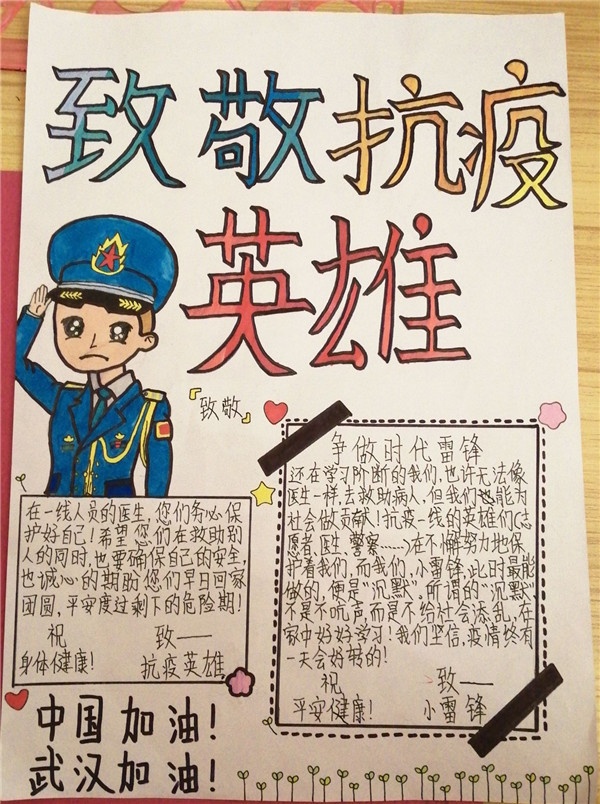 致敬抗疫
英雄
『致敬』
在一线人员的医生,您们务必保
护好自己!希望您们在救助别
人的同时,也要确保自己的安全,
也诚心的期助您们早日回家
团圆,平安度过剩下的危险期!
祝 致——
身体健康! 抗疫英雄
争做时代雷锋
还在学习阶断的我们,也许无法像
医生一样,去救助病人,但我们也能为
社会做贡献!抗疫一线的英雄们(志
愿者、医生、警察……)在不懈努力地保
护着我们,而我们,小雷锋,此时最能
做的,便是“沉默”,所谓的“沉默”
不是不吭声,而是不给社会添乱,在
家中好好学习!我们坚信,疫情终有
一天会好转的!
祝 致——
平安健康! 小雷锋
中国加油!
武汉加油!